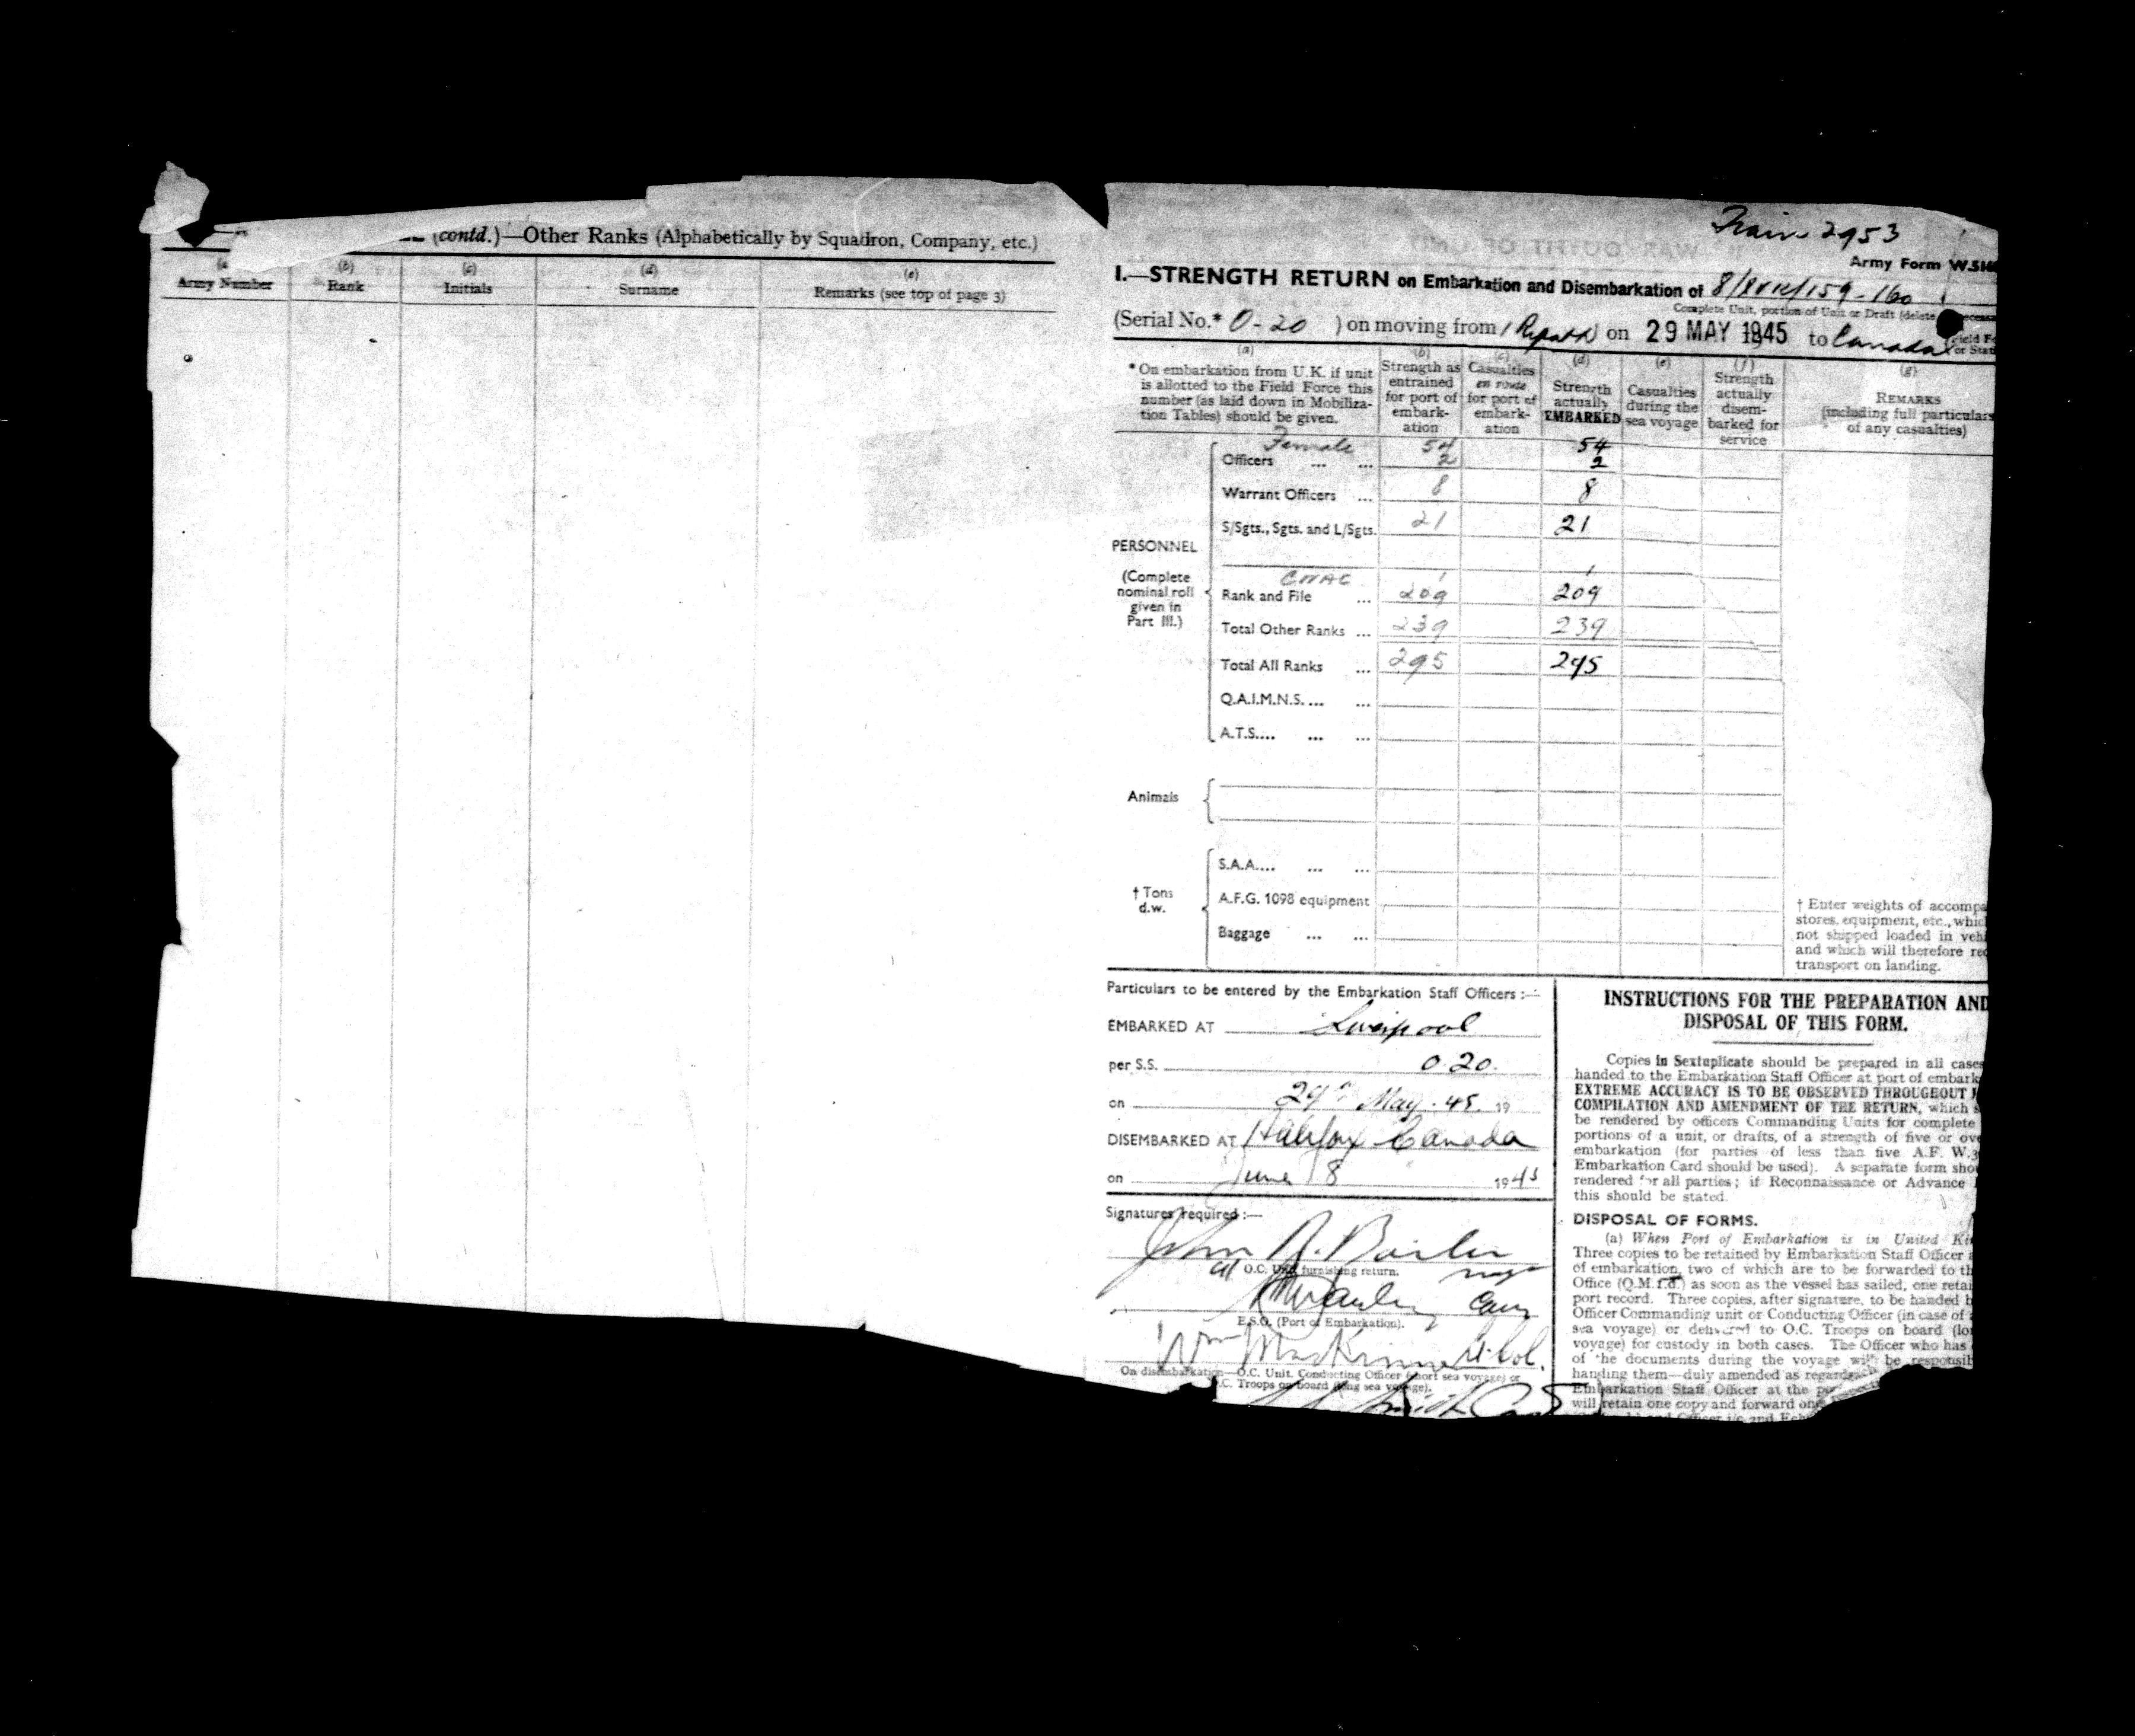 (contd.)—Other Ranks (Alphabetically by Squadron, Company, etc.)
(a (b) (c) (d) (e)
Army Number Rank Initials Surname Remarks (see top of page 3)
Train 2953
Army Form W.516
I.—STRENGTH RETURN on Embarkation and Disembarkation of 159-160
Complete Unit, portion of Unit or Draft (delete
(Serial No.* 0-20 ) on moving from on 29 MAY 1945 to Canada
(a) (b) (c) (d) (e) (f) (g)
*On embarkation from U.K. if unit
is allotted to the Field Force this
number (as laid down in Mobiliza-
tion Tables) should be given.
Strength as
entrained
for port of
embark-
ation
Casualties
en route
for port of
embark-
ation
Strength
actually
EMBARKED
Casualties
during the
sea voyage
Strength
actually
disem-
barked for
service
REMARKS
(including full particulars
of any casualties)
Female 54 54
Officers ... ... 2 2
Warrant Officers ... 8 8
S/Sgts., Sgts. and L/Sgts. 21 21
PERSONNEL
(Complete
nominal roll
given in
Part III.)
CWAC 1 1
Rank and File ... 209 209
Total Other Ranks ... 239 239
Total All Ranks ... 295 295
Q.A.I.M.N.S. ... ...
A.T.S.... ... ...
Animals
S.A.A.... ... ...
† Tons
d.w.
A.F.G. 1098 equipment
Baggage ... ...
† Enter weights of accompa
stores, equipment, etc., whic
not shipped loaded in vehi
and which will therefore req
transport on landing.
Particulars to be entered by the Embarkation Staff Officers :—
EMBARKED AT Liverpool
per S.S. 0.20.
on 29th May. 45. 19
DISEMBARKED AT Halifax Canada
on June 8 1945
Signatures required :—
John R.
O.C. Unit furnishing return.
E.S.O. (Port of Embarkation).
Wm MacKinnon Lt. Col.
On disembarkation—O.C. Unit. Conducting Officer (short sea voyage) or
.C. Troops on board (long sea voyage).
INSTRUCTIONS FOR THE PREPARATION AND
DISPOSAL OF THIS FORM.
Copies in Sextuplicate should be prepared in all cases
handed to the Embarkation Staff Officer at port of embark
EXTREME ACCURACY IS TO BE OBSERVED THROUGHOUT
COMPILATION AND AMENDMENT OF THE RETURN, which s
be rendered by officers Commanding Units for complete
portions of a unit, or drafts, of a strength of five or ove
embarkation (for parties of less than five A.F. W.3
Embarkation Card should be used). A separate form sho
rendered for all parties; if Reconnaissance or Advance
this should be stated.
DISPOSAL OF FORMS.
(a) When Port of Embarkation is in United Ki
Three copies to be retained by Embarkation Staff Officer a
of embarkation, two of which are to be forwarded to th
Office (Q.M.f.d.) as soon as the vessel has sailed, one retai
port record. Three copies, after signature, to be handed b
Officer Commanding unit or Conducting Officer (in case of
sea voyage) or delivered to O.C. Troops on board (lo
voyage) for custody in both cases. The Officer who has
of the documents during the voyage will be responsib
handing them—duly amended as regards
Embarkation Staff Officer at the po
will retain one copy and forward one